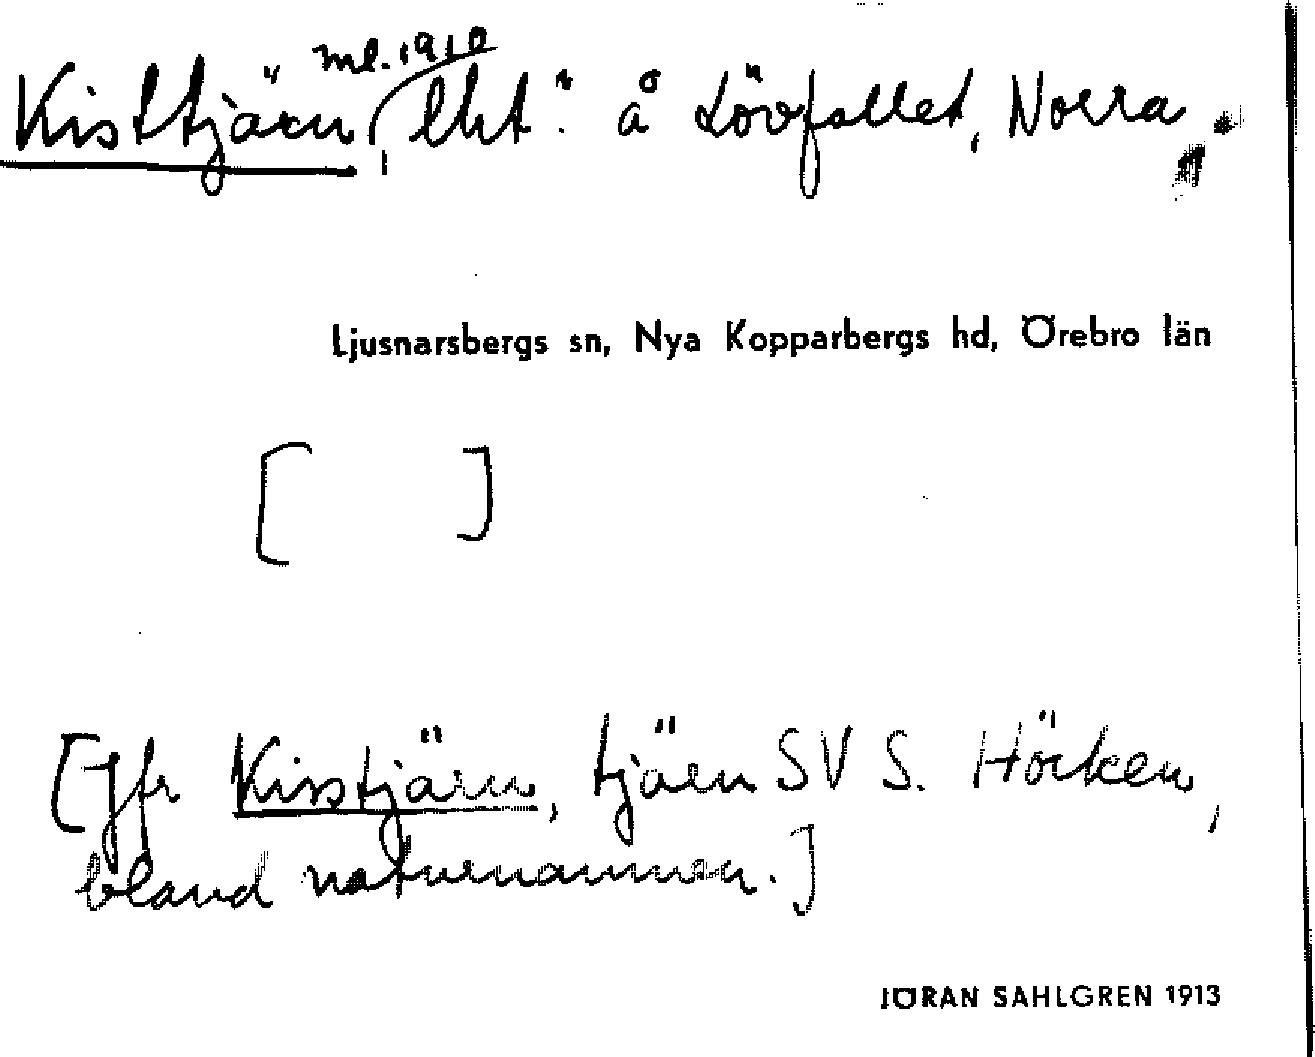 ml. 1910
Kisttjärn, lht. å Lövfallet, Norra
Ljusnarsbergs sn, Nya Kopparbergs hd, Örebro län
[ ]
[Jfr Kisstjärn, tjärn SV S. Hörken,
bland naturnamnen.]
JÖRAN SAHLGREN 1913